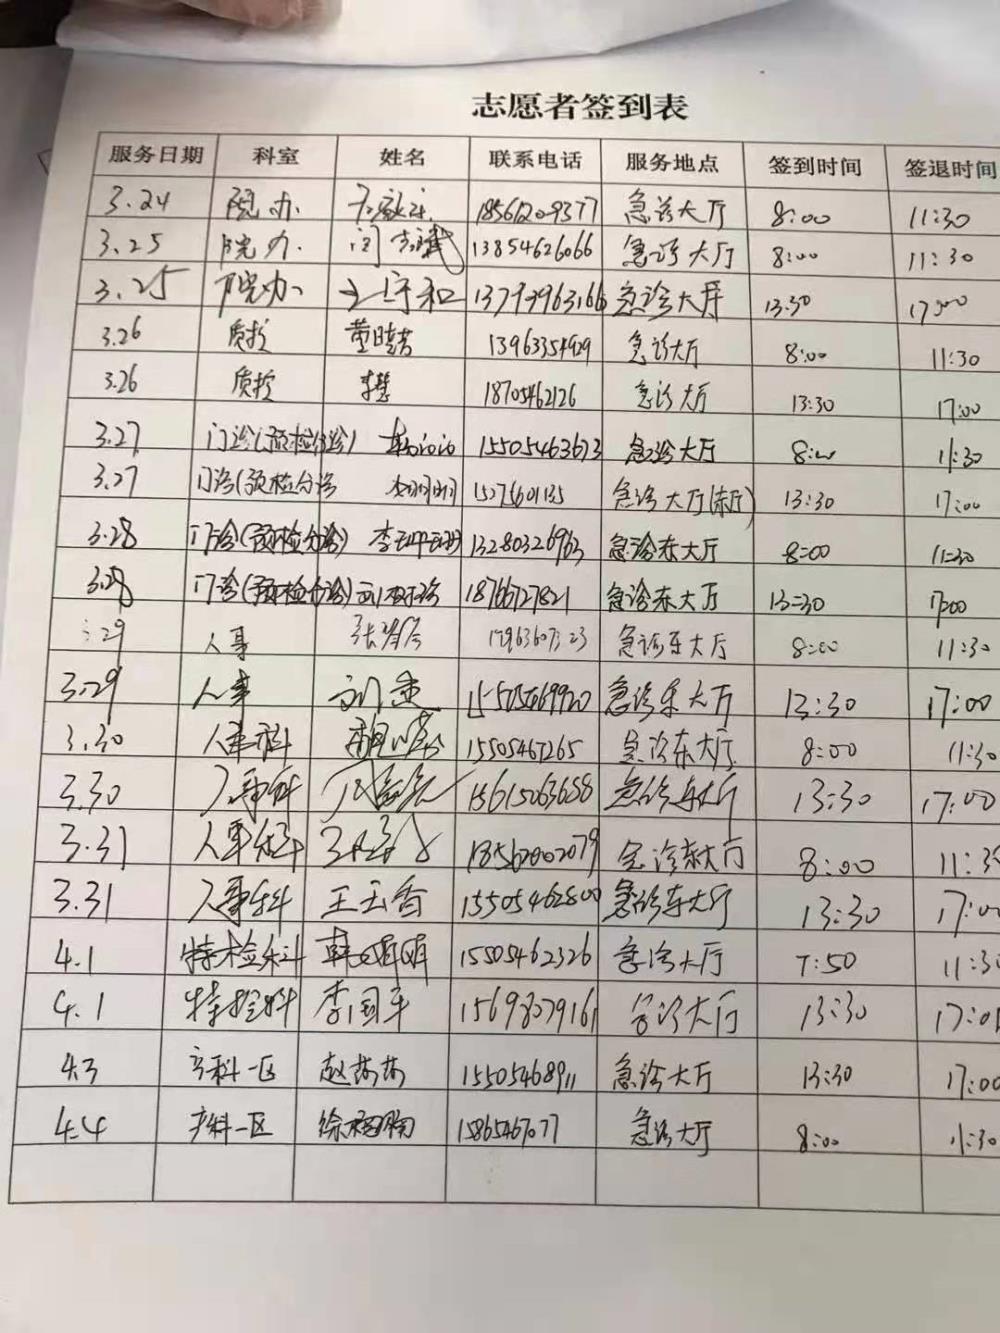 志愿者签到表
服务日期 科室 姓名 联系电话 服务地点 签到时间 签退时间
3.24 院办 18561209377 急诊大厅 8:00 11:30
3.25 院办 13854626066 急诊大厅 8:00 11:30
3.25 院办 王守和 13793963166 急诊大厅 13:30 17:00
3.26 质控 13963354929 急诊大厅 8:00 11:30
3.26 质控 18705462126 急诊大厅 13:30 17:00
3.27 门诊(预检分诊) 15505463673 急诊大厅 8:00 11:30
3.27 门诊(预检分诊 15275601135 急诊大厅(东厅) 13:30 17:00
3.28 门诊(预检分诊) 13280326963 急诊东大厅 8:00 11:30
3.28 门诊(预检分诊) 18766727821 急诊东大厅 13:30 17:00
3.29 人事 急诊东大厅 8:00 11:30
3.29 人事 急诊东大厅 13:30 17:00
3.30 人事科 15505467265 急诊东大厅 8:00 11:30
3.30 人事科 15615063658 急诊东大厅 13:30 17:00
3.31 人事科 18562002079 急诊东大厅 8:00 11:3
3.31 人事科 王玉香 15505462800 急诊东大厅 13:30 17:0
4.1 特检科 韩娟娟 15505462326 急诊大厅 7:50 11:3
4.1 特检科 李国平 15698079161 急诊大厅 13:30 17:0
4.3 产科一区 赵芳芳 15505468911 急诊大厅 13:30 17:00
4.4 产科一区 15865467077 急诊大厅 8:00 11:30